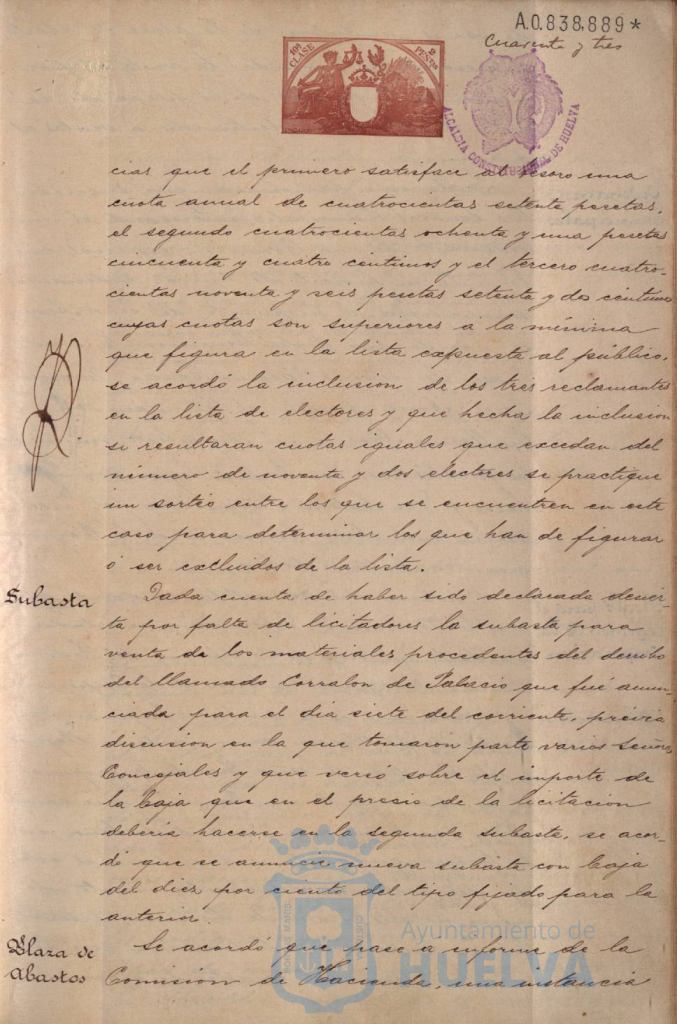 A.0.838,889*
Cuarenta y tres
10ª CLASE
2 PESETAS
ALCALDIA CONSTITUCIONAL DE HUELVA
cias que el primero satisface al tesoro una
cuota anual de cuatrocientas setenta pesetas,
el segundo cuatrocientas ochenta y una pesetas
cincuenta y cuatro centimos y el tercero cuatro-
cientas noventa y seis pesetas setenta y dos centimos
cuyas cuotas son superiores á la mínima
que figura en la lista expuesta al público,
se acordó la inclusion de los tres reclamantes
en la lista de electores y que hecha la inclusion
si resultaran cuotas iguales que excedan del
número de noventa y dos electores se practique
un sorteo entre los que se encuentren en este
caso para determinar los que han de figurar
ó ser excluidos de la lista.
Subasta
Dada cuenta de haber sido declarada desier-
ta por falta de licitadores la subasta para
venta de los materiales procedentes del derribo
del llamado Corralon de Palacio que fué anun-
ciada para el dia siete del corriente, prévia
discusion en la que tomaron parte varios Señores
Concejales y que versó sobre el importe de
la baja que en el precio de la licitacion
deberia hacerse en la segunda subasta, se acor-
dó que se anuncie nueva subasta con baja
del diez por ciento del tipo fijado para la
anterior.
Plaza de
Abastos
Se acordó que pase a informe de la
Comision de Hacienda, una instancia
Ayuntamiento de
HUELVA